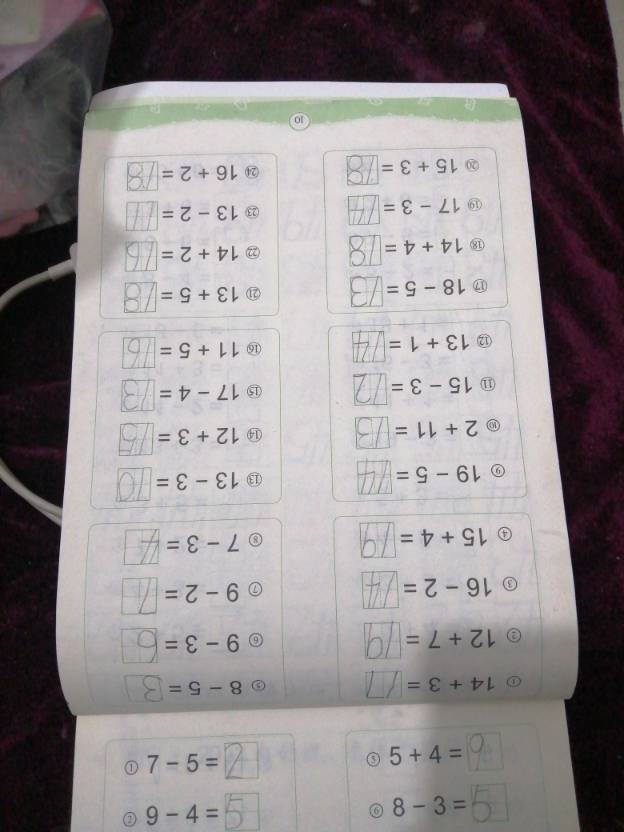 ① 14 + 3 = 17
② 12 + 7 = 19
③ 16 − 2 = 14
④ 15 + 4 = 19
⑤ 8 − 5 = 3
⑥ 9 − 3 = 6
⑦ 9 − 2 = 7
⑧ 7 − 3 = 4
⑨ 19 − 5 = 14
⑩ 2 + 11 = 13
⑪ 15 − 3 = 12
⑫ 13 + 1 = 14
⑬ 13 − 3 = 10
⑭ 12 + 3 = 15
⑮ 17 − 4 = 13
⑯ 11 + 5 = 16
⑰ 18 − 5 = 13
⑱ 14 + 4 = 18
⑲ 17 − 3 = 14
⑳ 15 + 3 = 18
㉑ 13 + 5 = 18
㉒ 14 + 2 = 16
㉓ 13 − 2 = 11
㉔ 16 + 2 = 18
10
① 7 − 5 = 2
② 9 − 4 = 5
⑤ 5 + 4 = 9
⑥ 8 − 3 = 5